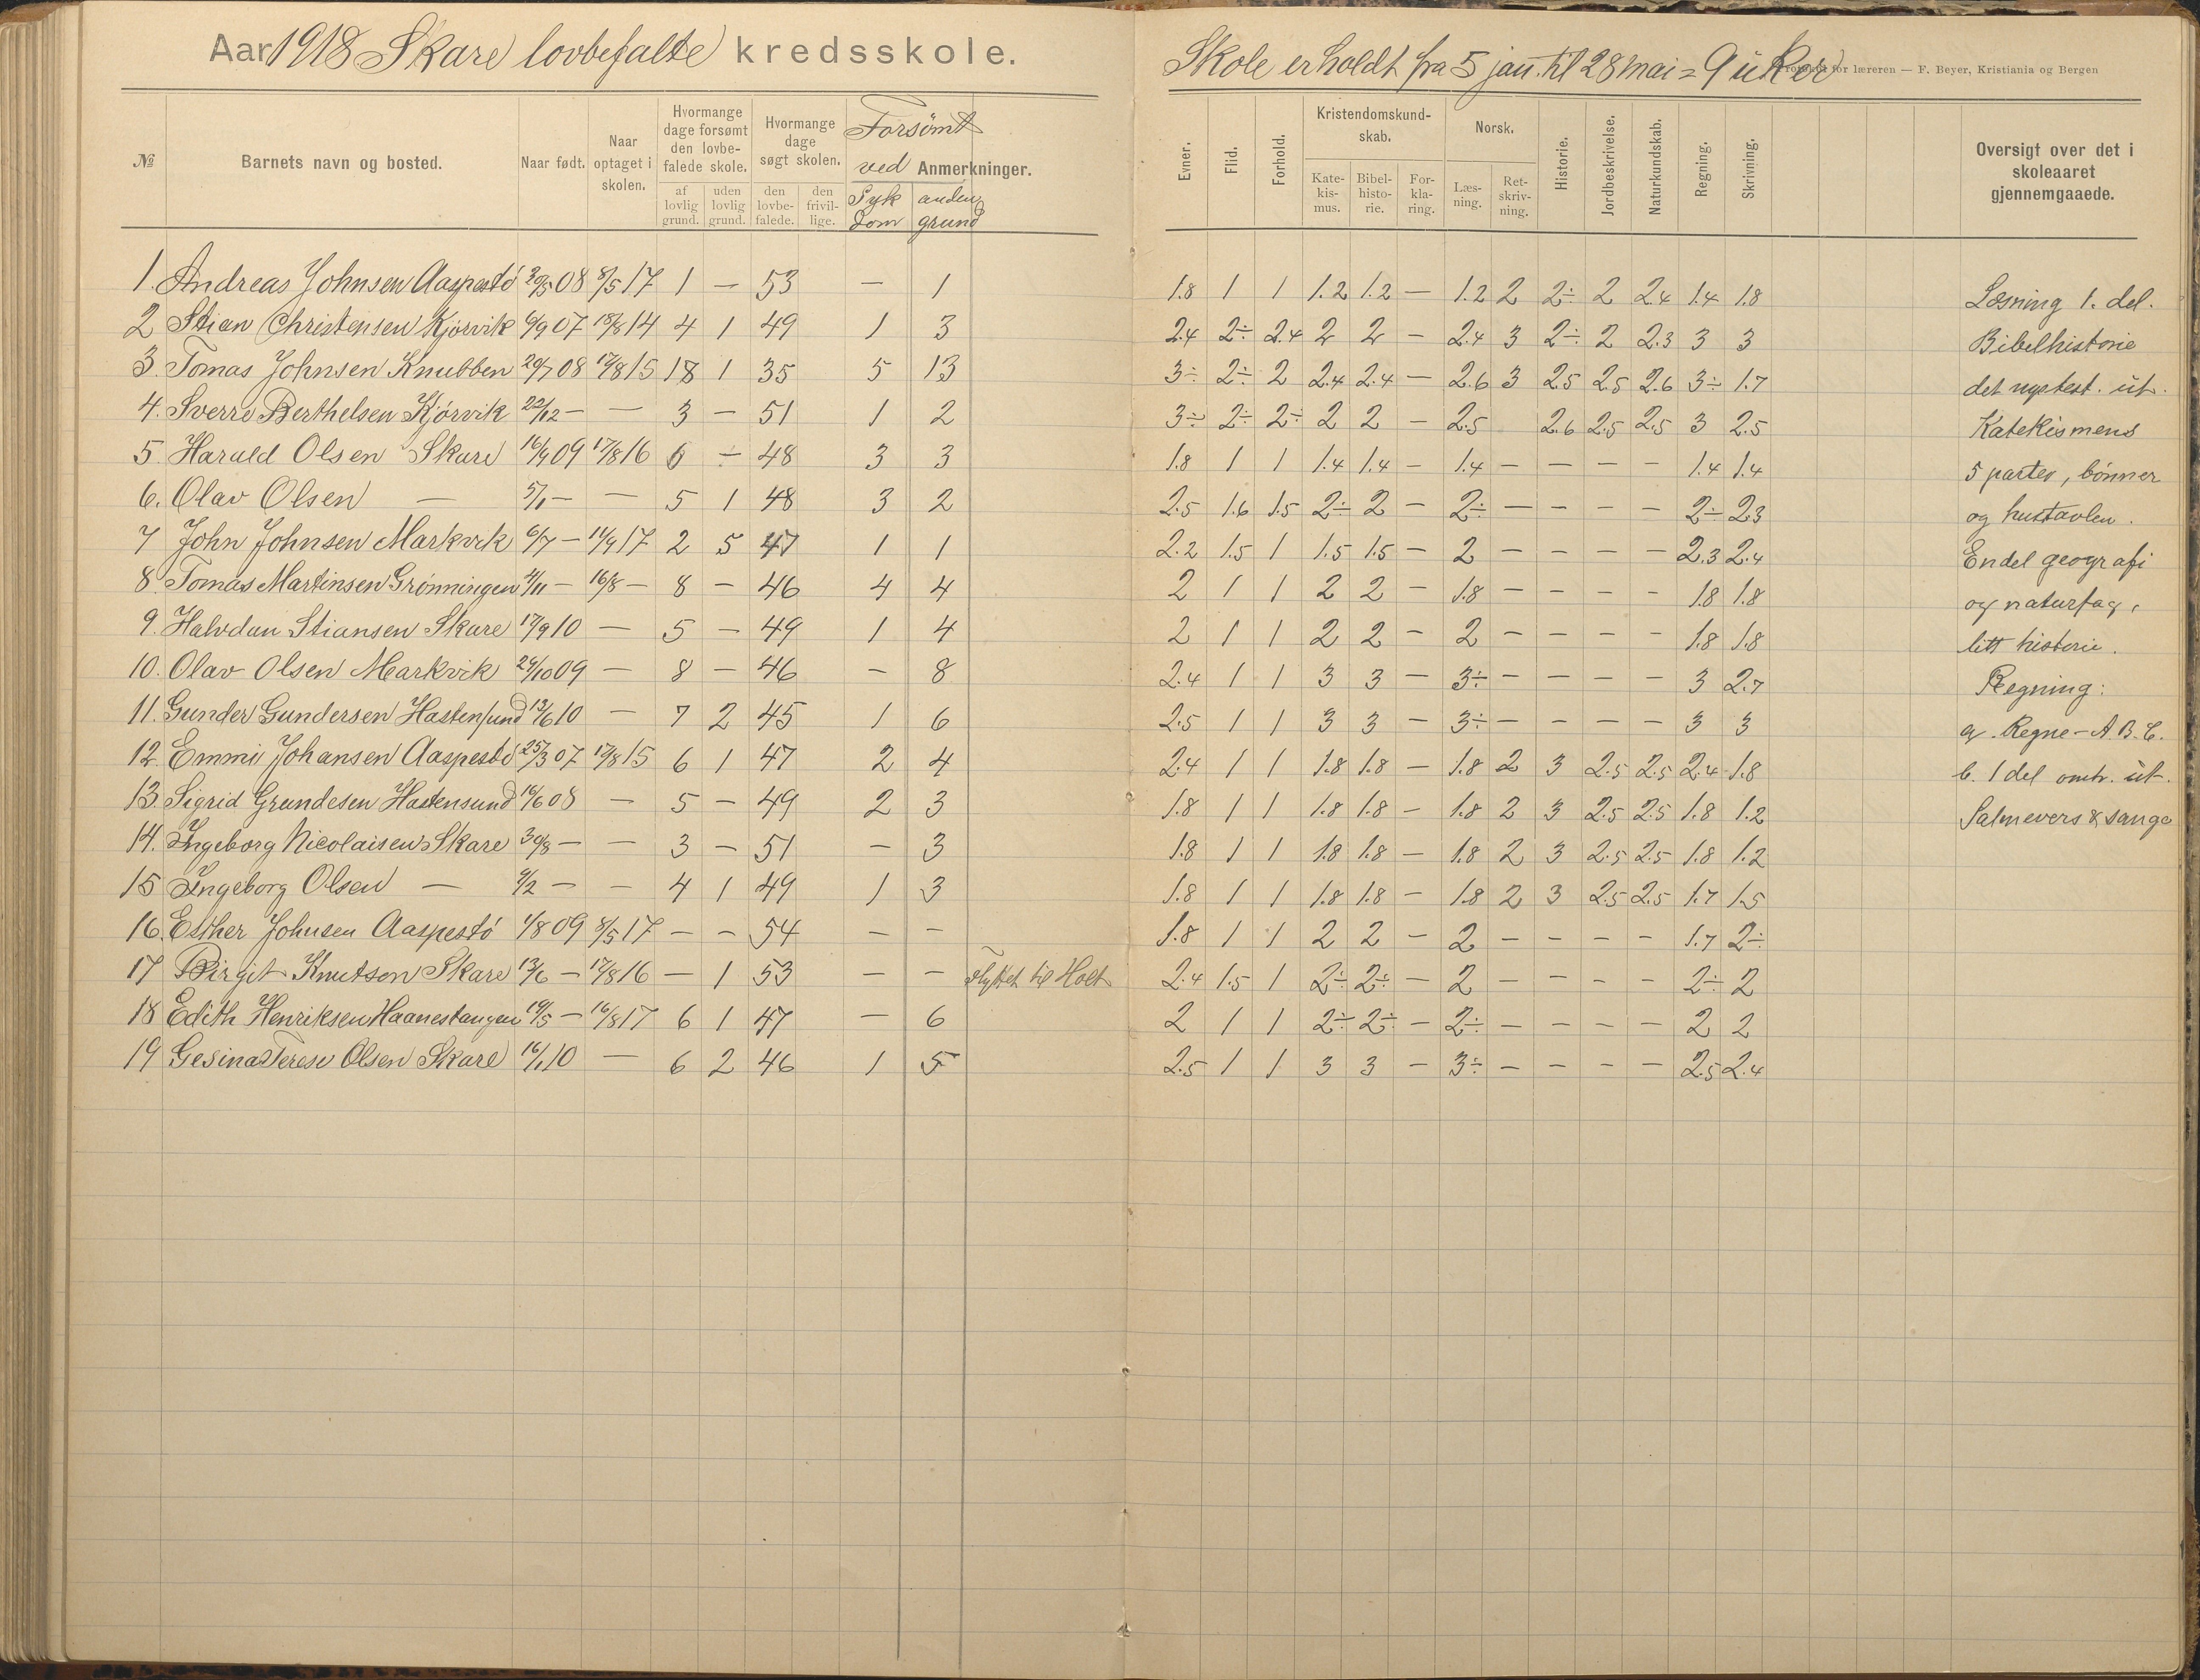 Aar 1918 Skare lovbefalte kredsskole.
Skole er holdt fra 5 jan. til 28 mai = 9 uker
for læreren — F. Beyer, Kristiania og Bergen
№ Barnets navn og bosted. Naar født. Naar optaget i skolen. Hvormange dage forsømt den lovbefalede skole. af lovlig grund. uden lovlig grund. Hvormange dage søgt skolen. den lovbefalede. den frivillige. Forsømt ved Sykdom anden grund Anmerkninger.
Evner. Flid. Forhold. Kristendomskundskab. Katekismus. Bibelhistorie. Forklaring. Norsk. Læsning. Retskrivning. Historie. Jordbeskrivelse. Naturkundskab. Regning. Skrivning. Oversigt over det i skoleaaret gjennemgaaede.
1. Andreas Johnsen Aaspestø 30/5 08 8/5 17 1 — 53 — 1 1.8 1 1 1.2 1.2 — 1.2 2 2÷ 2 2.4 1.4 1.8 Læsning 1. del.
2 Stian Christensen Kjørvik 6/9 07 18/8 14 4 1 49 1 3 2.4 2÷ 2.4 2 2 — 2.4 3 2÷ 2 2.3 3 3 Bibelhistorie
3. Tomas Johnsen Knubben 20/7 08 17/8 15 18 1 35 5 13 3÷ 2÷ 2 2.4 2.4 — 2.6 3 2.5 2.5 2.6 3÷ 1.7 det nytest. ut.
4. Sverre Berthelsen Kjørvik 22/12 — — 3 — 51 1 2 3÷ 2÷ 2÷ 2 2 — 2.5 2.6 2.5 2.5 3 2.5 Katekismens
5. Harald Olsen Skare 16/9 09 17/8 16 6 ÷ 48 3 3 1.8 1 1 1.4 1.4 — 1.4 — — — — 1.4 1.4 5 parter, bønner
6. Olav Olsen — 5/1 — — 5 1 48 3 2 2.5 1.6 1.5 2÷ 2 — 2÷ — — — — 2÷ 2.3 og hustavlen.
7 John Johnsen Markvik 6/7 — 11/9 17 2 5 47 1 1 2.2 1.5 1 1.5 1.5 — 2 — — — — 2.3 2.4 Endel geografi
8. Tomas Martinsen Grønningen 4/11 — 16/8 — 8 — 46 4 4 2 1 1 2 2 — 1.8 — — — — 1.8 1.8 og naturfag,
9. Halvdan Stiansen Skare 17/9 10 — 5 — 49 1 4 2 1 1 2 2 — 2 — — — — 1.8 1.8 litt historie.
10. Olav Olsen Markvik 24/10 09 — 8 — 46 — 8 2.4 1 1 3 3 — 3÷ — — — — 3 2.7 Regning:
11. Gunder Gundersen Hastensund 13/6 10 — 7 2 45 1 6 2.5 1 1 3 3 — 3÷ — — — — 3 3 a. Regne-A.B.C.
12. Emmi Johansen Aaspestø 25/3 07 17/8 15 6 1 47 2 4 2.4 1 1 1.8 1.8 — 1.8 2 3 2.5 2.5 2.4 1.8 b. 1 del omtr. ut.
13. Sigrid Grundesen Hastensund 16/6 08 — 5 — 49 2 3 1.8 1 1 1.8 1.8 — 1.8 2 3 2.5 2.5 1.8 1.2 Salmevers & sange
14. Ingeborg Nicolaisen Skare 30/8 — — 3 — 51 — 3 1.8 1 1 1.8 1.8 — 1.8 2 3 2.5 2.5 1.8 1.2
15 Ingeborg Olsen — 9/2 — — 4 1 49 1 3 1.8 1 1 1.8 1.8 — 1.8 2 3 2.5 2.5 1.7 1.5
16. Esther Johnsen Aaspestø 1/8 09 8/5 17 — — 54 — — 1.8 1 1 2 2 — 2 — — — — 1.7 2÷
17 Birgit Knutson Skare 13/6 — 17/8 16 — 1 53 — — Flyttet til Holt 2.4 1.5 1 2÷ 2÷ — 2 — — — — 2÷ 2
18 Edith Henriksen Haanestangen 19/5 — 16/8 17 6 1 47 — 6 2 1 1 2÷ 2÷ — 2÷ — — — — 2 2
19 Gesina Terese Olsen Skare 16/1 10 — 6 2 46 1 5 2.5 1 1 3 3 — 3÷ — — — — 2.5 2.4